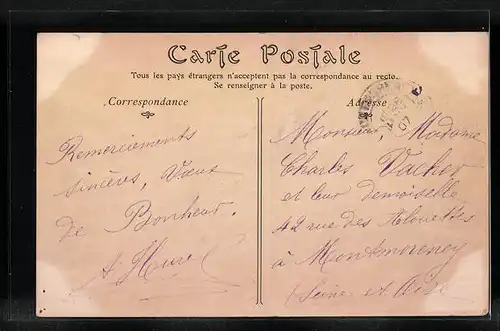 Carte Postale
Tous les pays étrangers n'acceptent pas la correspondance au recto.
Se renseigner à la poste.
Correspondance
Remerciements
sincères, Vœux
de Bonheur.
Adresse
07
Monsieur, Madame
Charles Vacher
et leur demoiselle
42 rue des Alouettes
à Montmorency
Seine et Oise